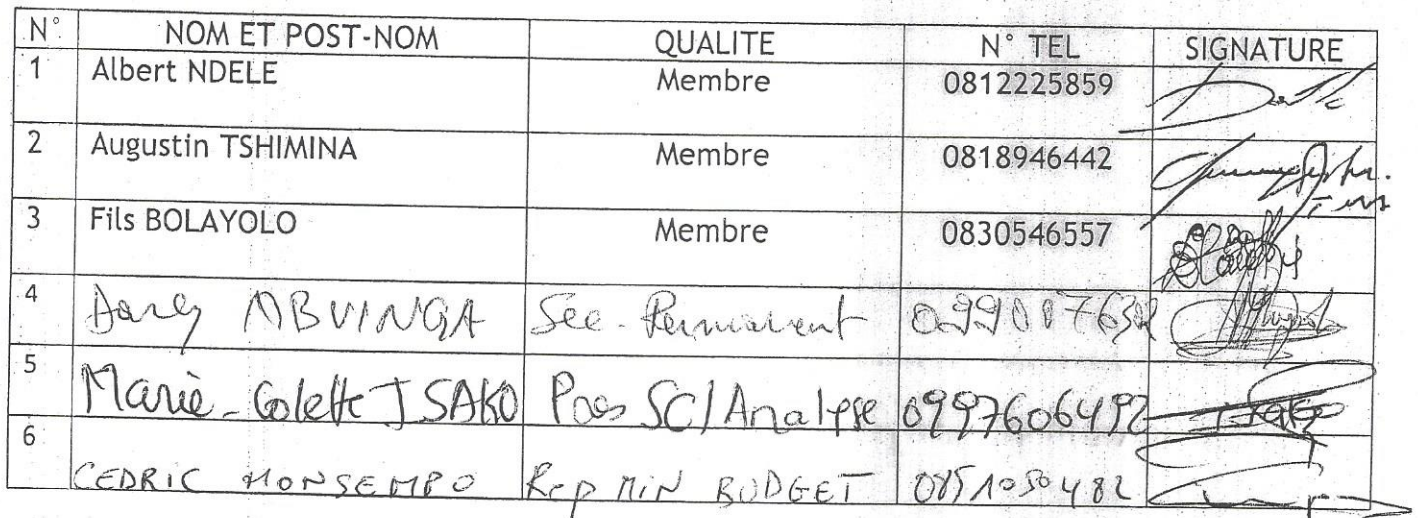 N° NOM ET POST-NOM QUALITE N° TEL SIGNATURE
1 Albert NDELE Membre 0812225859
2 Augustin TSHIMINA Membre 0818946442
3 Fils BOLAYOLO Membre 0830546557
4 MBUINGA Sec. Permanent
5 Marie-Colette ISAKO Pres SC/Analyse 0997606492
6 CEDRIC MONSEMPO Rep MIN BUDGET 0851050482